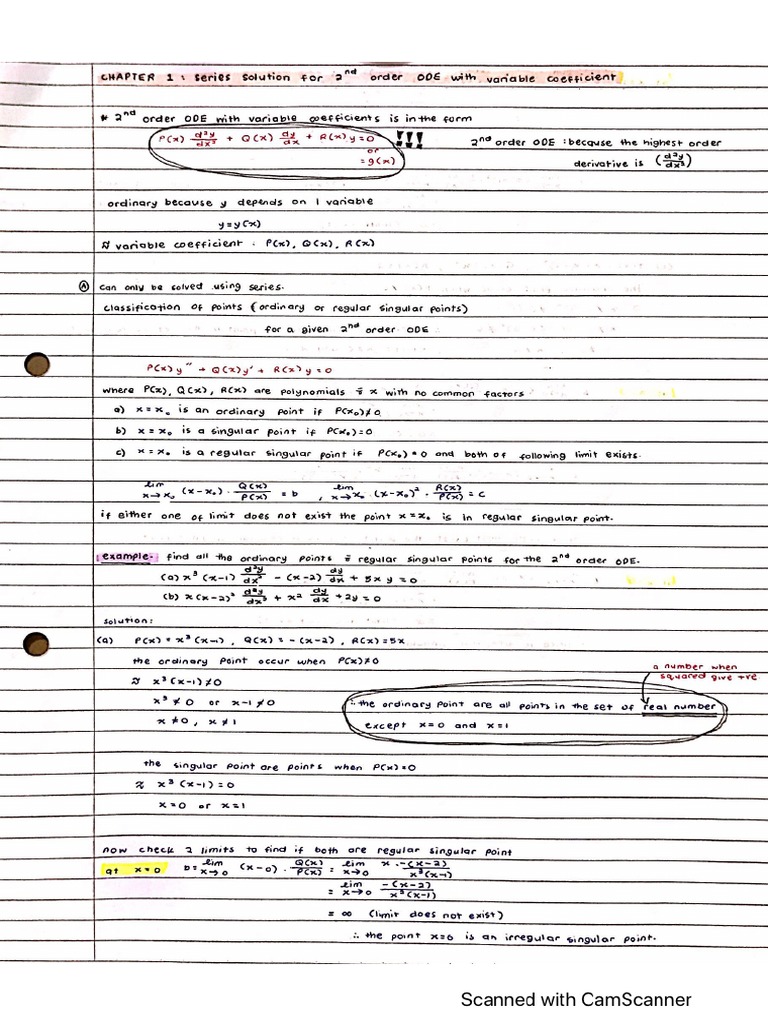 CHAPTER 1 : Series Solution for 2nd order ODE with variable coefficient
* 2nd order ODE with variable coefficients is in the form
P(x) d²y/dx² + Q(x) dy/dx + R(x)y = 0 !!!
or
= g(x)
2nd order ODE : because the highest order
derivative is (d²y/dx²)
ordinary because y depends on 1 variable
y = y(x)
variable coefficient : P(x), Q(x), R(x)
Ⓐ can only be solved using series.
classification of points (ordinary or regular singular points)
for a given 2nd order ODE
P(x)y" + Q(x)y' + R(x)y = 0
where P(x), Q(x), R(x) are polynomials x with no common factors
a) x = x₀ is an ordinary point if P(x₀) ≠ 0
b) x = x₀ is a singular point if P(x₀) = 0
c) x = x₀ is a regular singular point if P(x₀) = 0 and both of following limit exists.
lim x→x₀ (x-x₀) · Q(x)/P(x) = b , lim x→x₀ · (x-x₀)² · R(x)/P(x) = c
if either one of limit does not exist the point x = x₀ is in regular singular point.
example. find all the ordinary points = regular singular points for the 2nd order ODE.
(a) x³ (x-1) d²y/dx² - (x-2) dy/dx + 5x y = 0
(b) x(x-2)² d²y/dx² + x² dy/dx + 2y = 0
solution:
(a) P(x) = x³(x-1) , Q(x) = -(x-2) , R(x) = 5x
the ordinary point occur when P(x) ≠ 0
a number when
squared give +ve
≈ x³(x-1) ≠ 0
x³ ≠ 0 or x-1 ≠ 0
∴ the ordinary point are all points in the set of real number
x ≠ 0 , x ≠ 1
except x=0 and x=1
the singular point are points when P(x) = 0
≈ x³(x-1) = 0
x=0 or x=1
now check 2 limits to find if both are regular singular point
at x=0 b = lim x→0 (x-0) · Q(x)/P(x) = lim x→0 x · -(x-2)/x³(x-1)
= lim x→0 -(x-2)/x²(x-1)
= ∞ (limit does not exist)
∴ the point x=0 is an irregular singular point.
Scanned with CamScanner